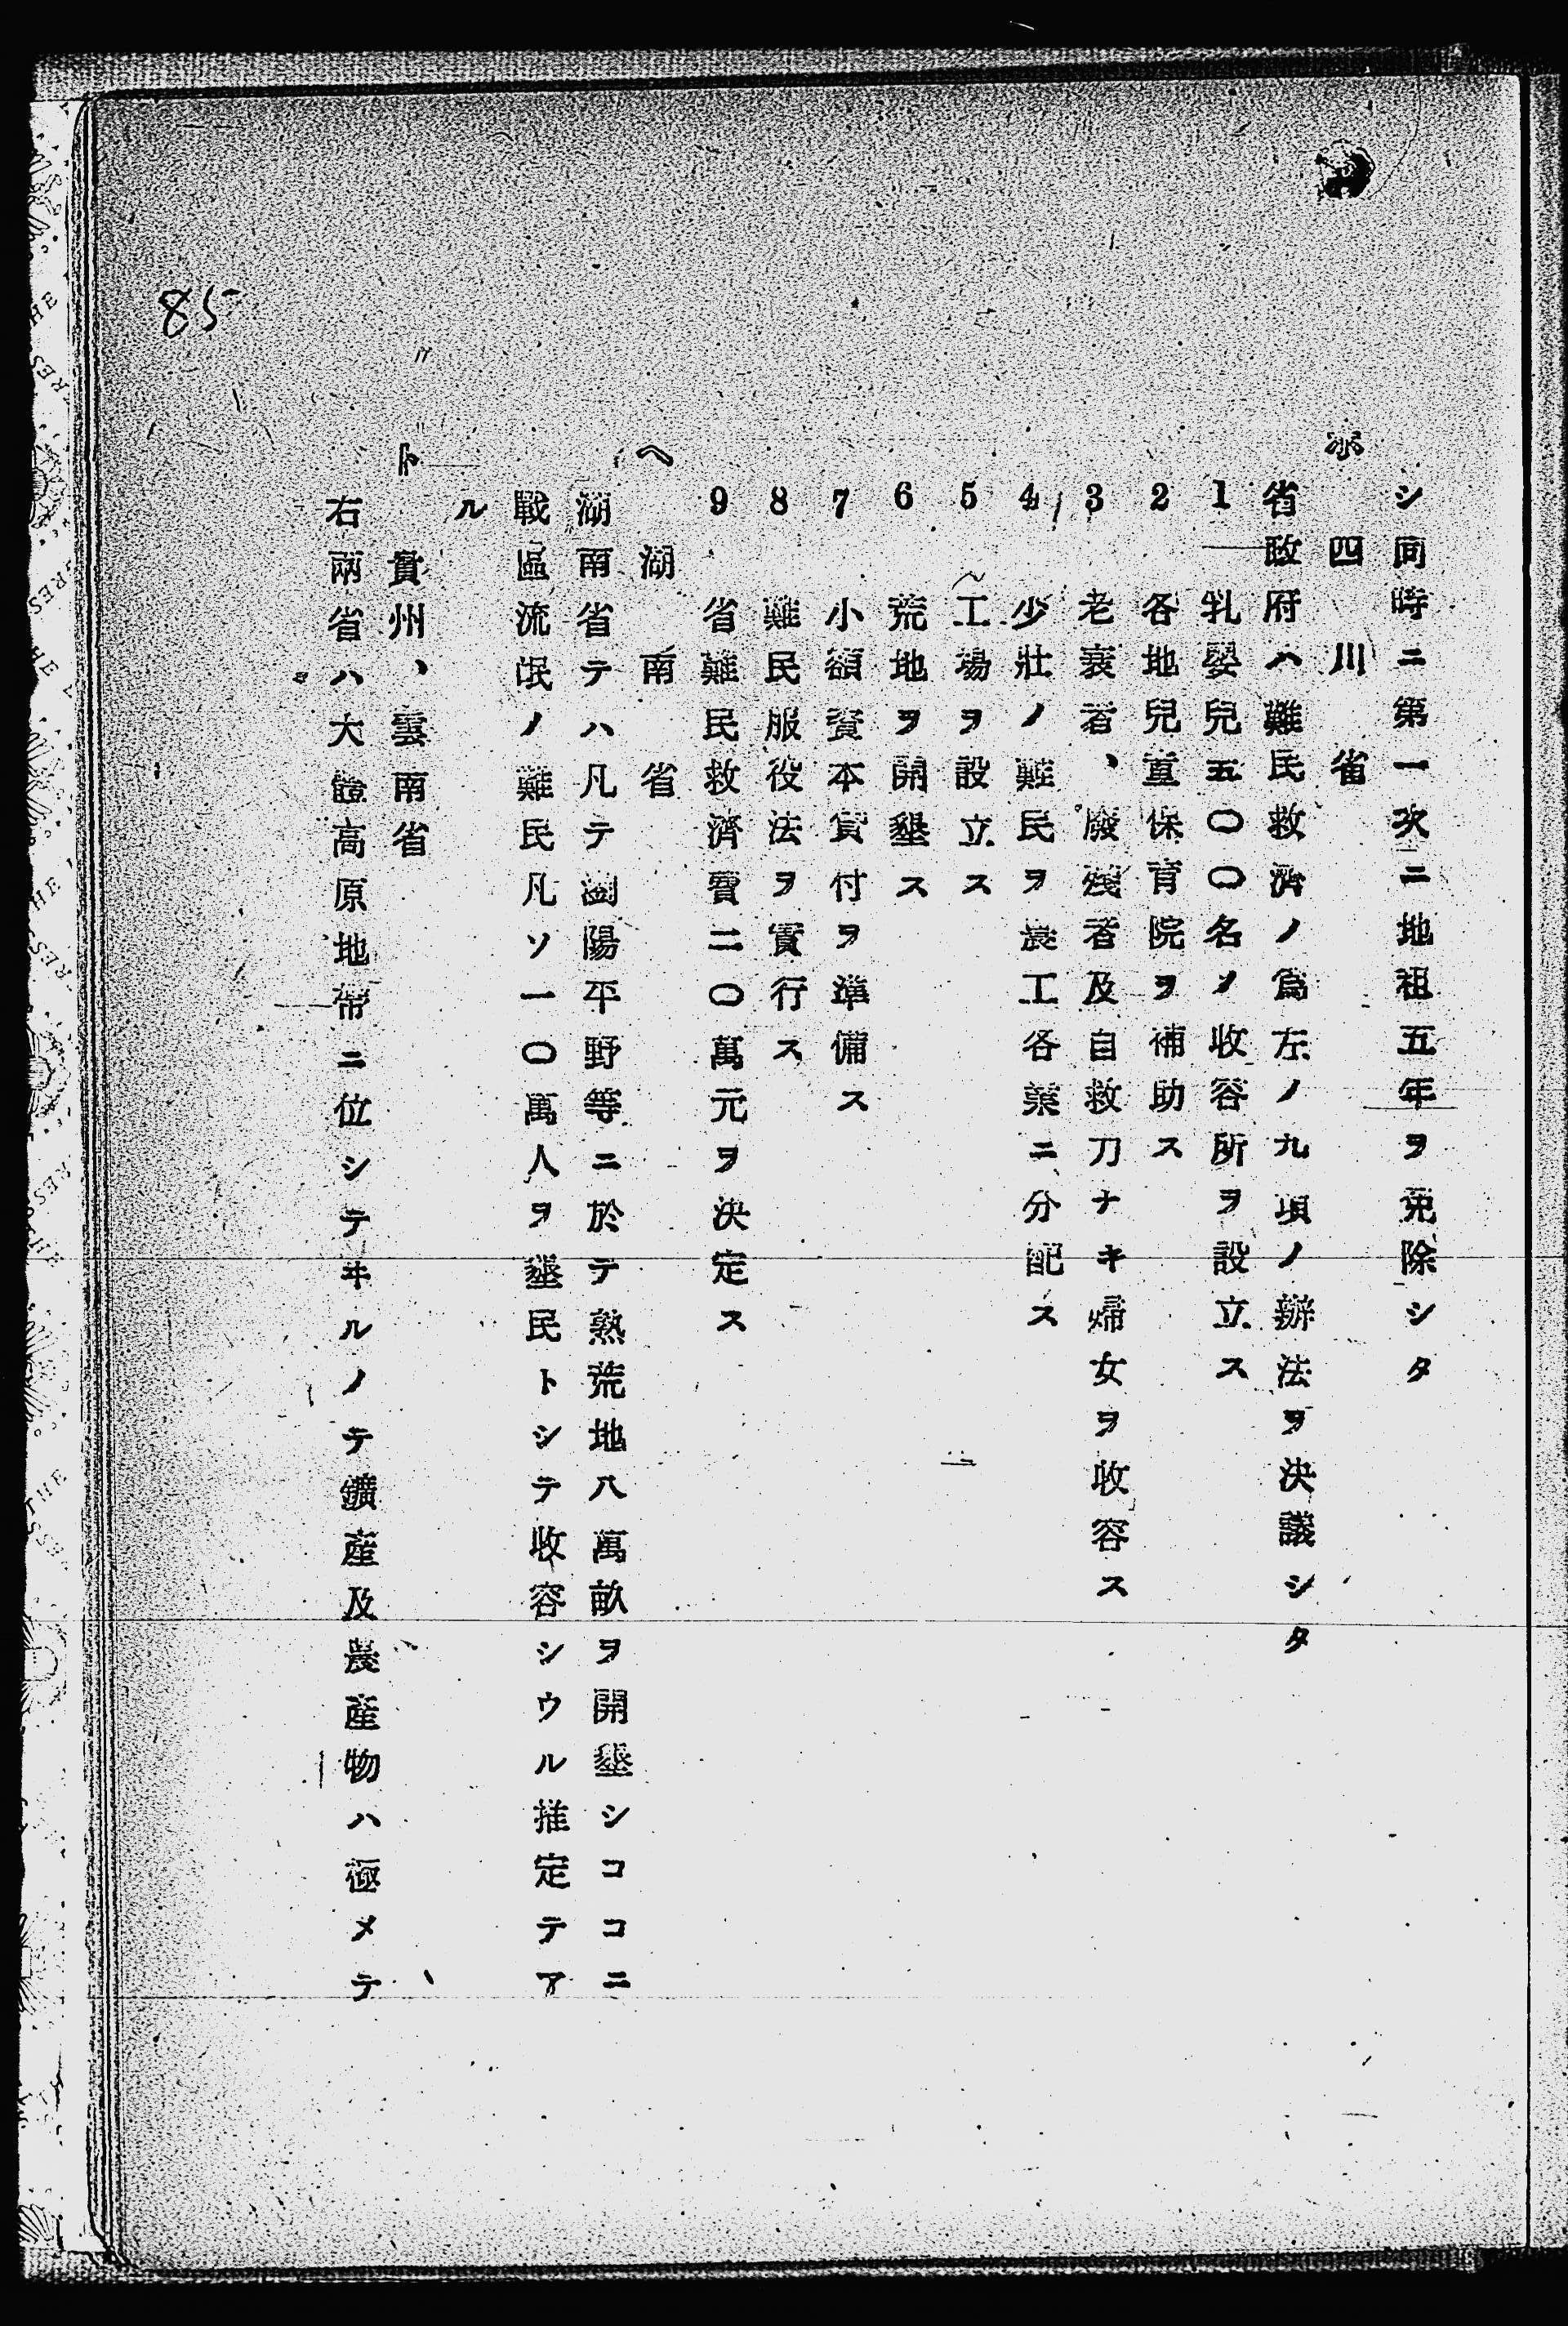 シ同時ニ第一次ニ地祖五年ヲ免除シタ
ホ 四川省
省政府ハ難民救濟ノ爲左ノ九項ノ辦法ヲ決議シタ
1 乳嬰兒五〇〇名ノ收容所ヲ設立ス
2 各地兒童保育院ヲ補助ス
3 老衰者、廢殘者及自救刀ナキ婦女ヲ收容ス
4 少壯ノ難民ヲ農工各業ニ分配ス
5 工場ヲ設立ス
6 荒地ヲ開墾ス
7 小額資本貸付ヲ準備ス
8 難民服役法ヲ實行ス
9 省難民救濟費二〇萬元ヲ決定ス
ヘ 湖南省
湖南省テハ凡テ瀏陽平野等ニ於テ熟荒地八萬畝ヲ開墾シココニ
戰區流氓ノ難民凡ソ一〇萬人ヲ墾民トシテ收容シウル推定テア
ル
ト 貴州、雲南省
右兩省ハ大體高原地帶ニ位シテヰルノテ鑛産及農産物ハ極メテ
85